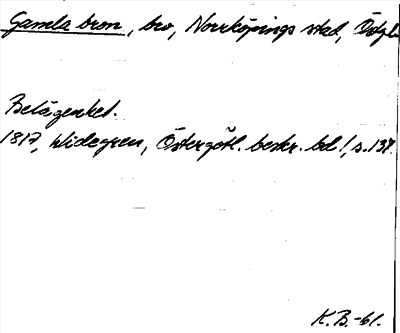 Gamla bron, bro, Norrköpings stad, Östgl.
Belägenhet.
1817, Widegren, Östergötl. beskr. bd 1, s. 137.
K.B.-61.